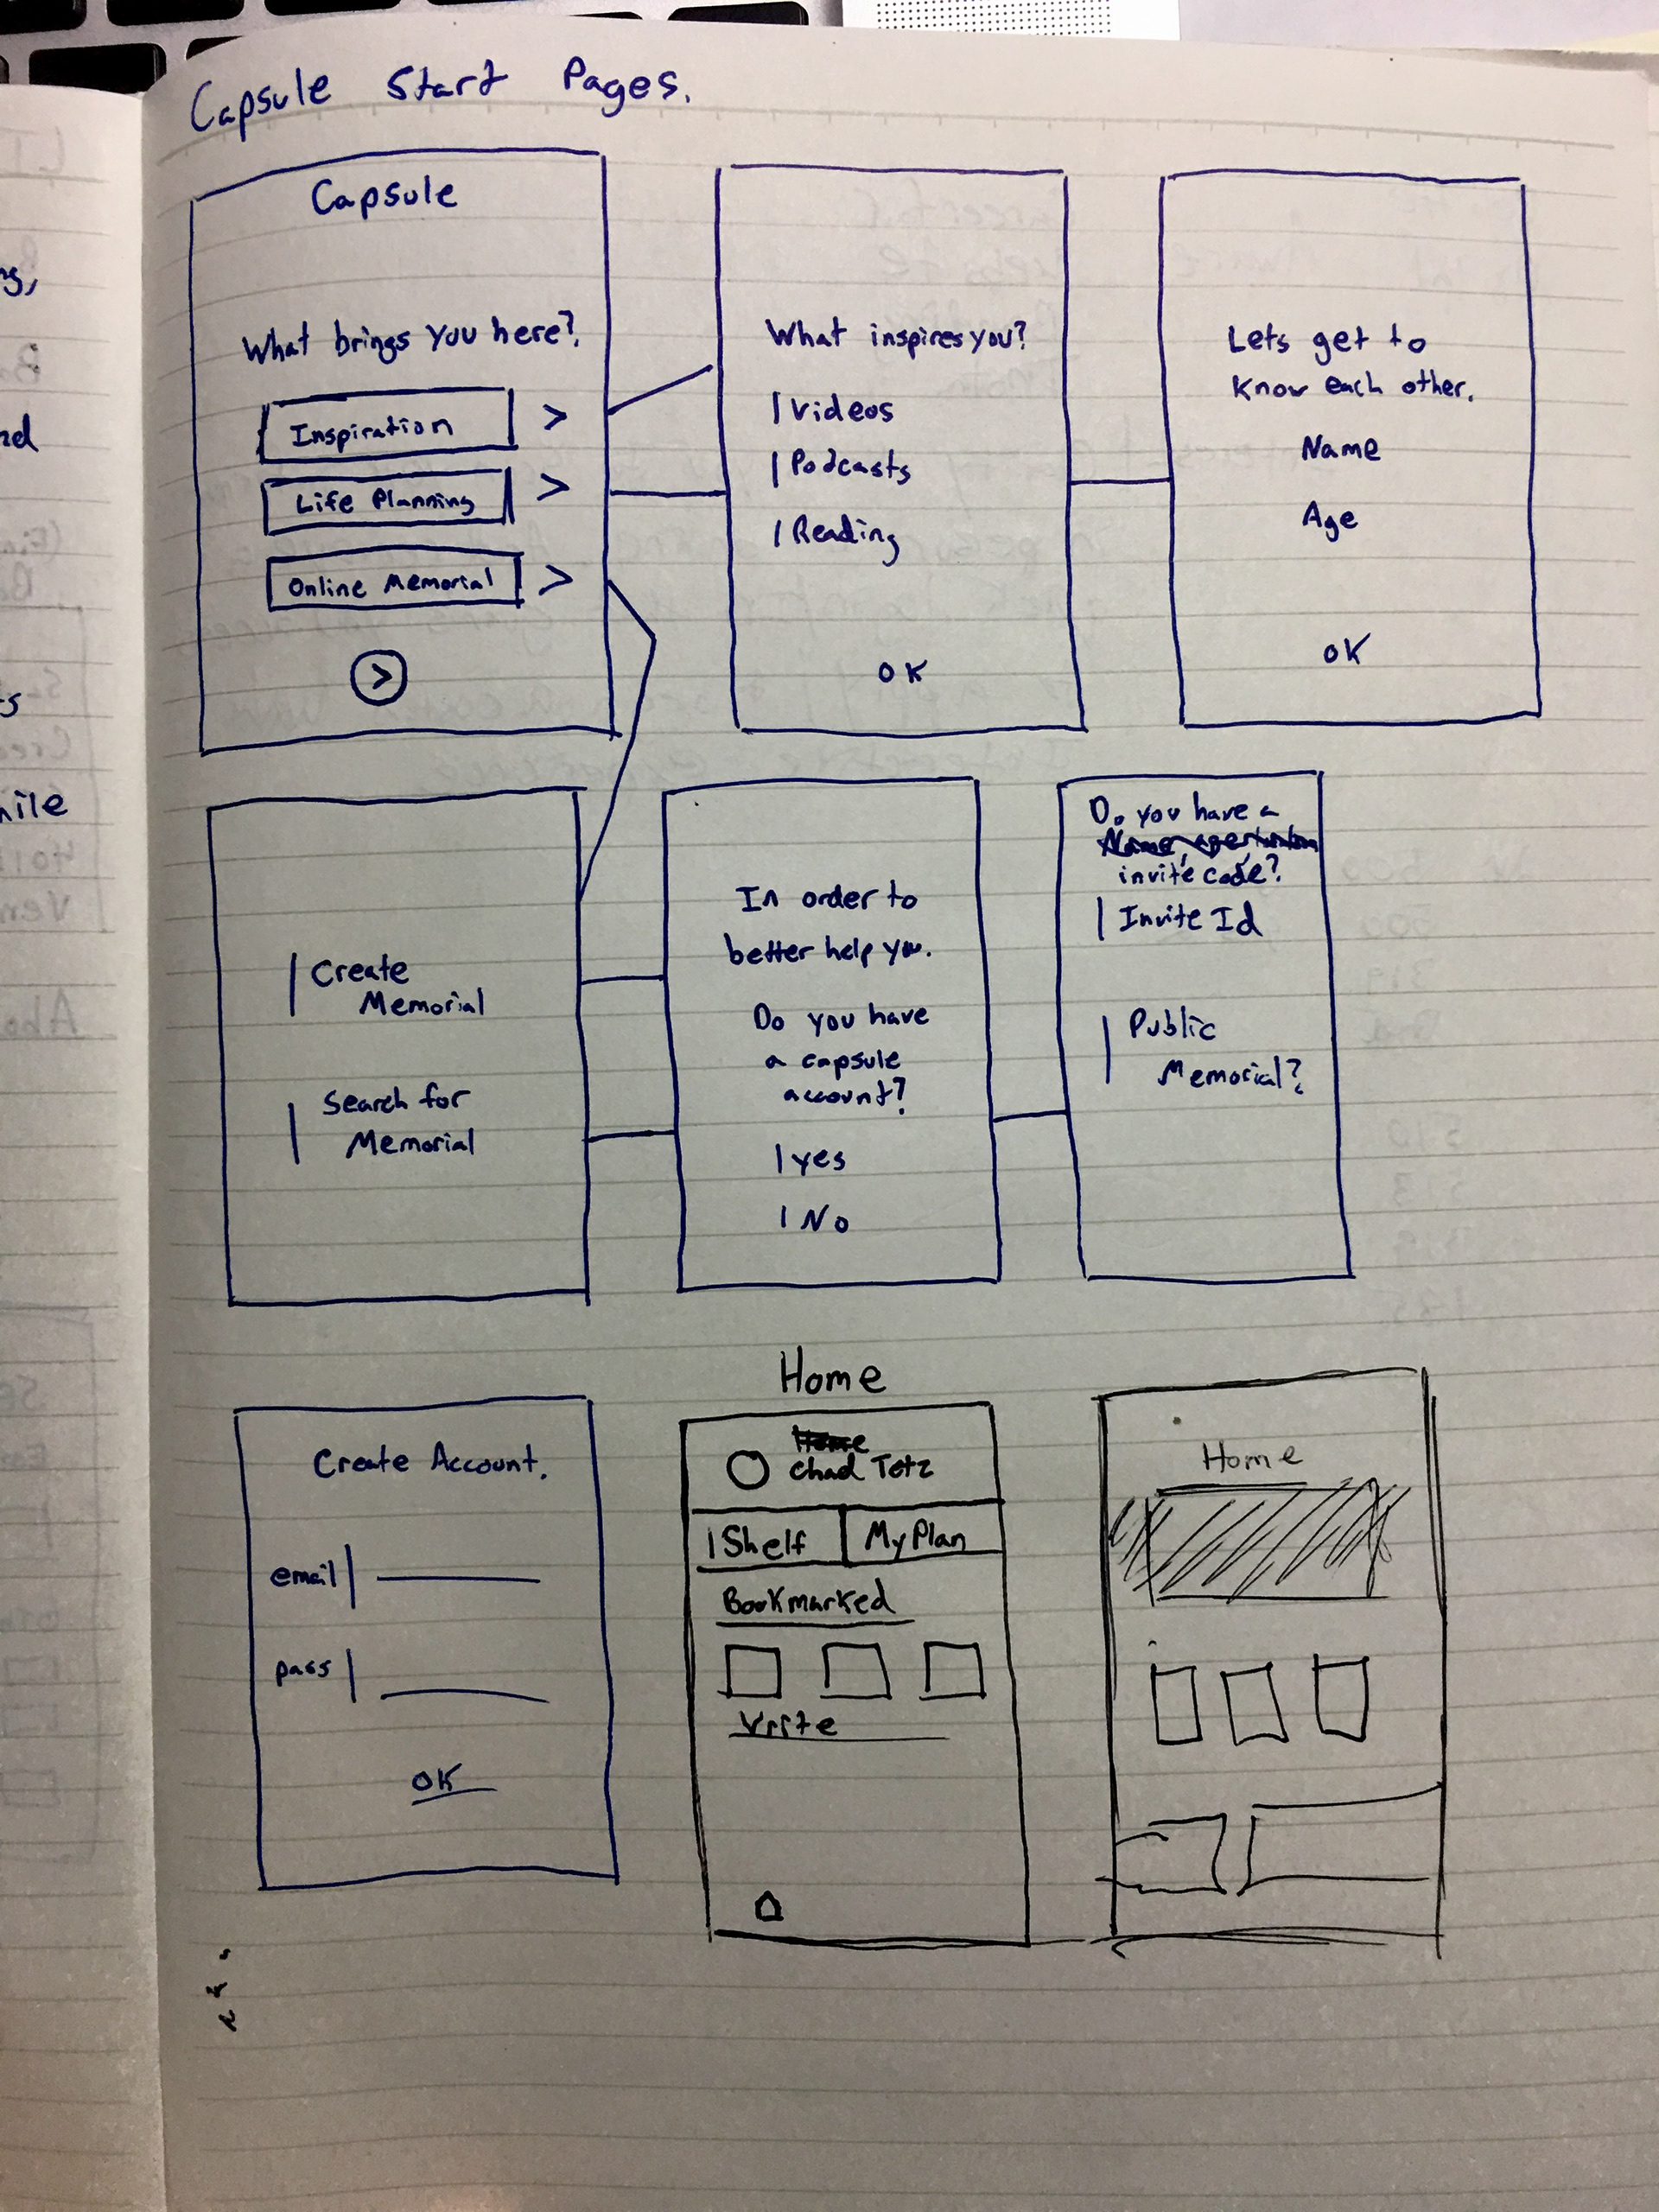 Capsule Start Pages.
Capsule
What brings you here?
Inspiration >
Life Planning >
Online Memorial >
>
What inspires you?
Videos
Podcasts
Reading
OK
Lets get to
Know each other.
Name
Age
OK
Create
Memorial
Search for
Memorial
In order to
better help you.
Do you have
a capsule
account?
yes
No
Do you have a
invite code?
Invite Id
Public
Memorial?
Create Account.
email
pass
OK
Home
Home
Chad Totz
Shelf
My Plan
Bookmarked
Write
Home